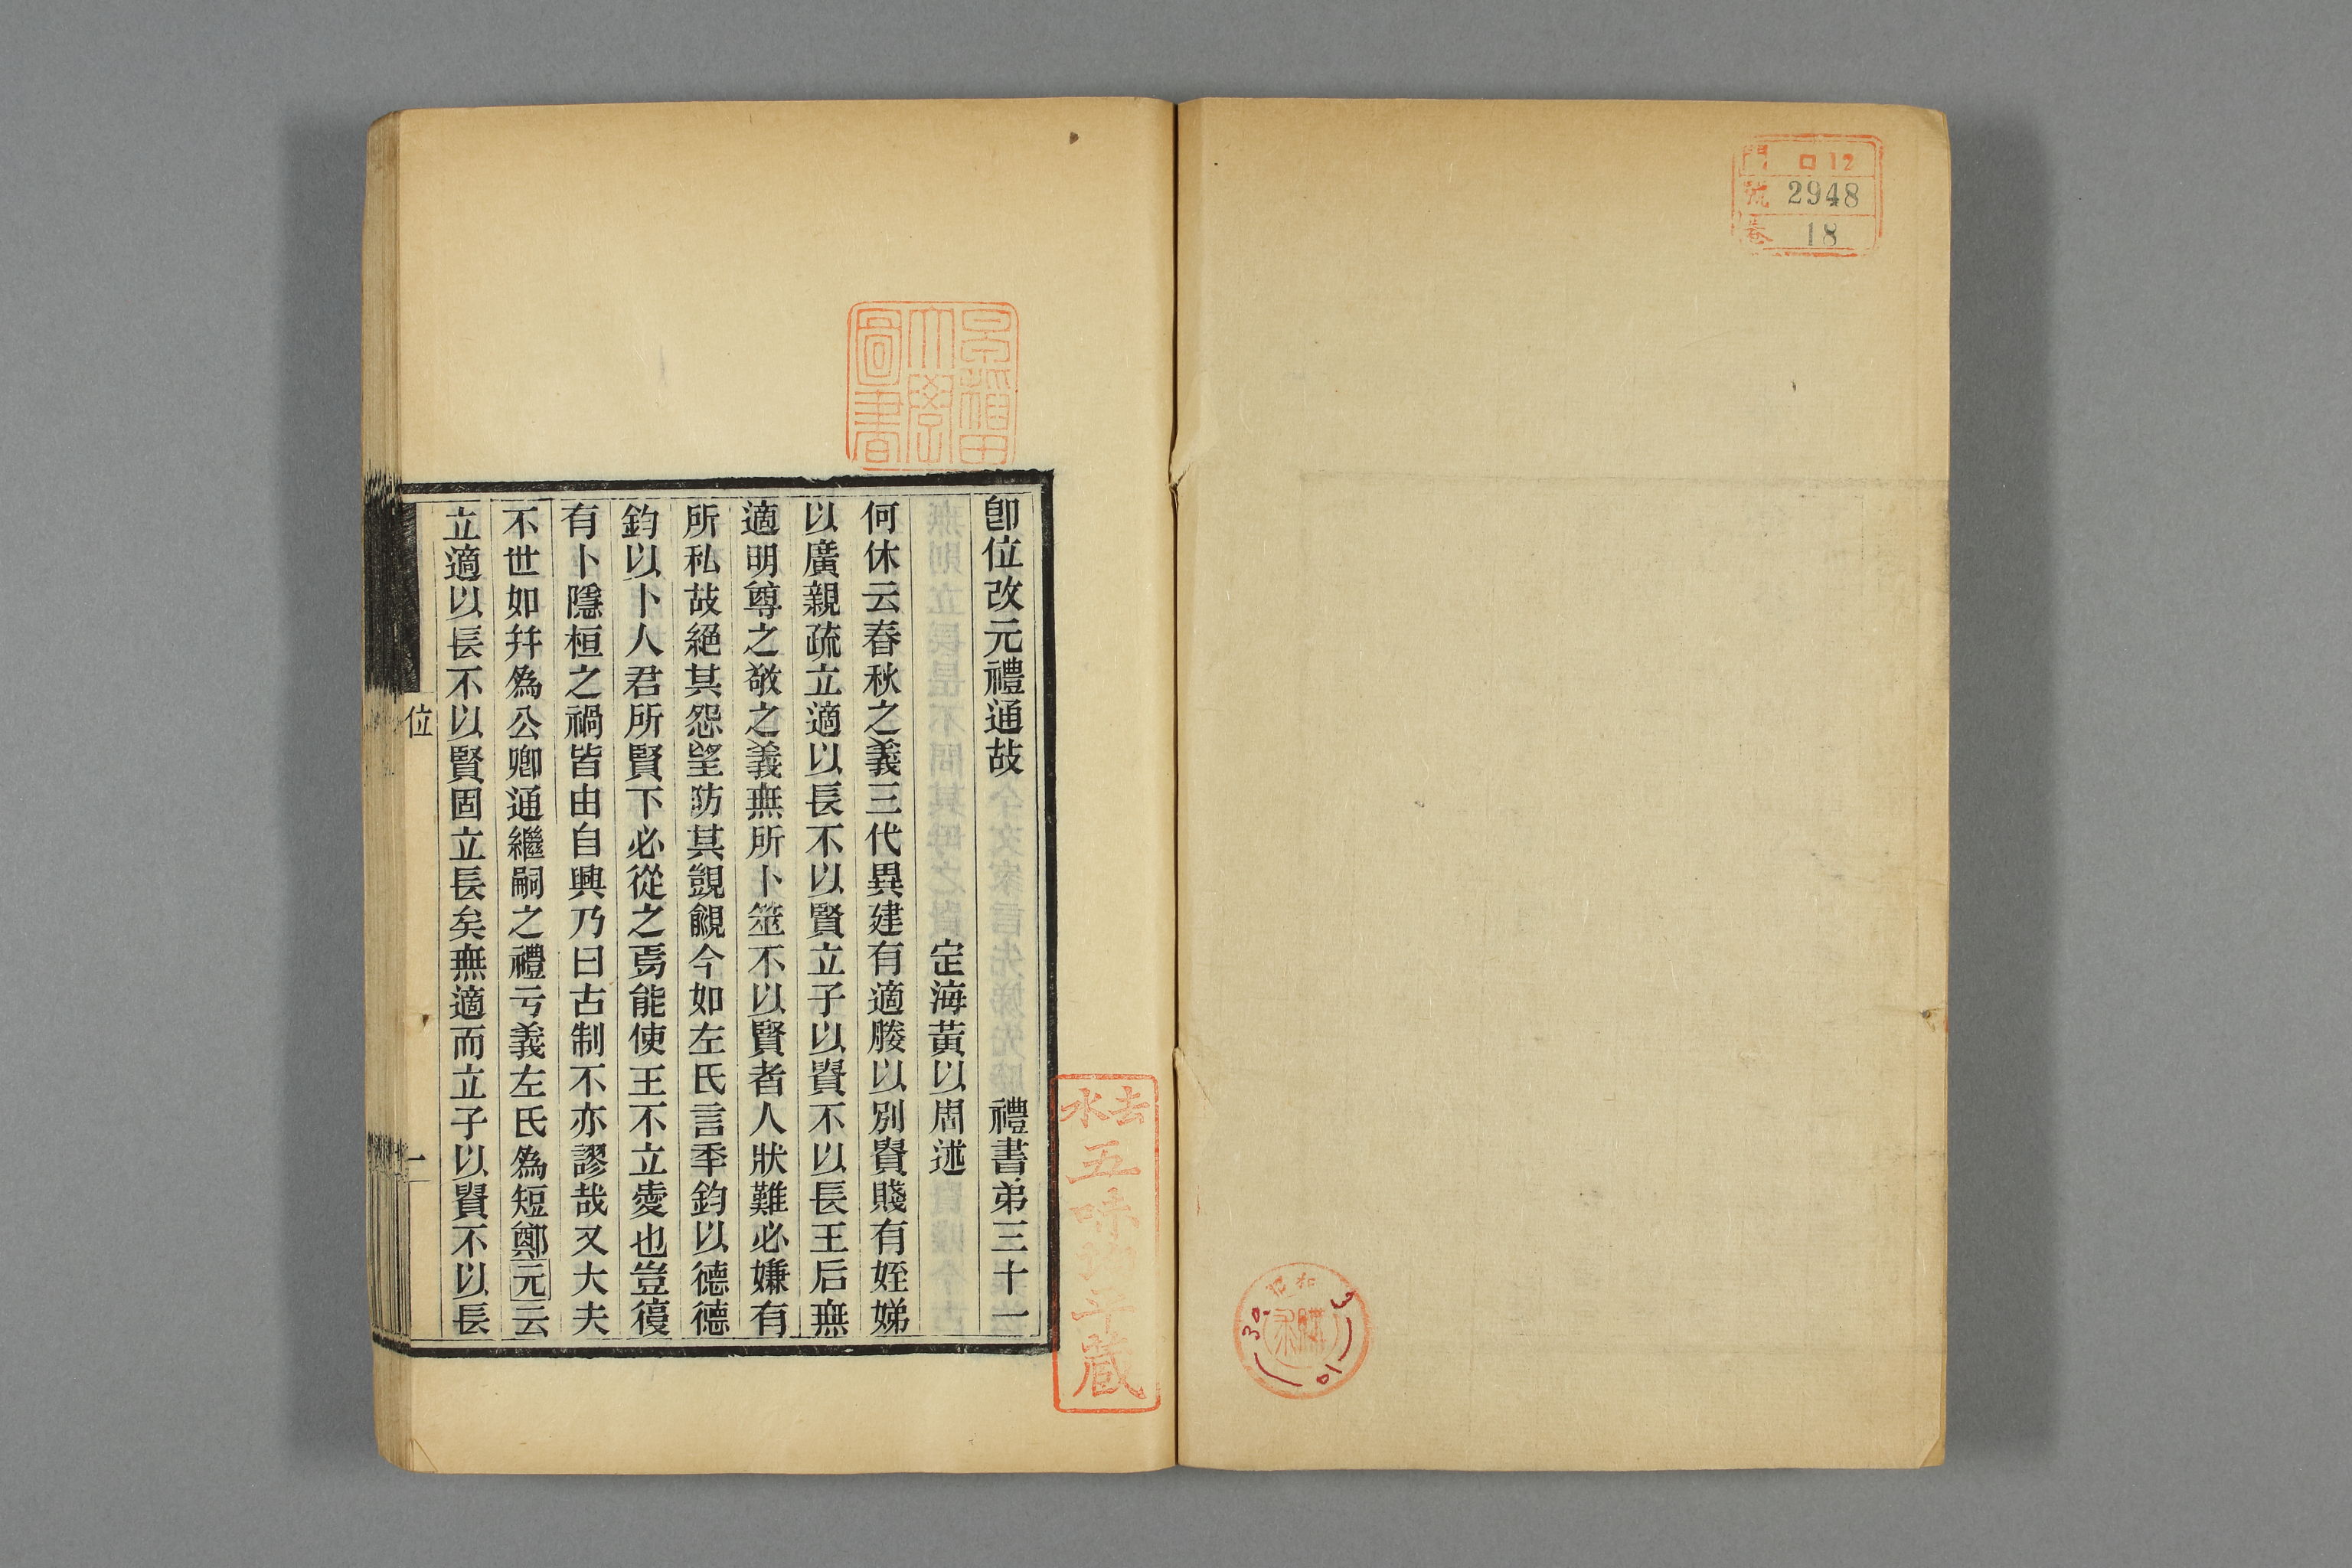 門 ロ12
號 2948
卷 18
昭和
購求
30.
3
10
早稲田大學圖書
卽位改元禮通故 禮書弟三十一
定海黃以周述
何休云春秋之義三代異建有適媵以別貴賤有姪娣
以廣親疏立適以長不以賢立子以貴不以長王后無
適明尊之敬之義無所卜筮不以賢者人狀難必嫌有
所私故絕其怨望防其覬覦今如左氏言年鈞以德德
鈞以卜人君所賢下必從之焉能使王不立愛也豈復
有卜隱桓之禍皆由自興乃曰古制不亦謬哉又大夫
不世如幷爲公卿通繼嗣之禮亏義左氏爲短鄭元云
立適以長不以賢固立長矣無適而立子以貴不以長
位
一
五味
藏